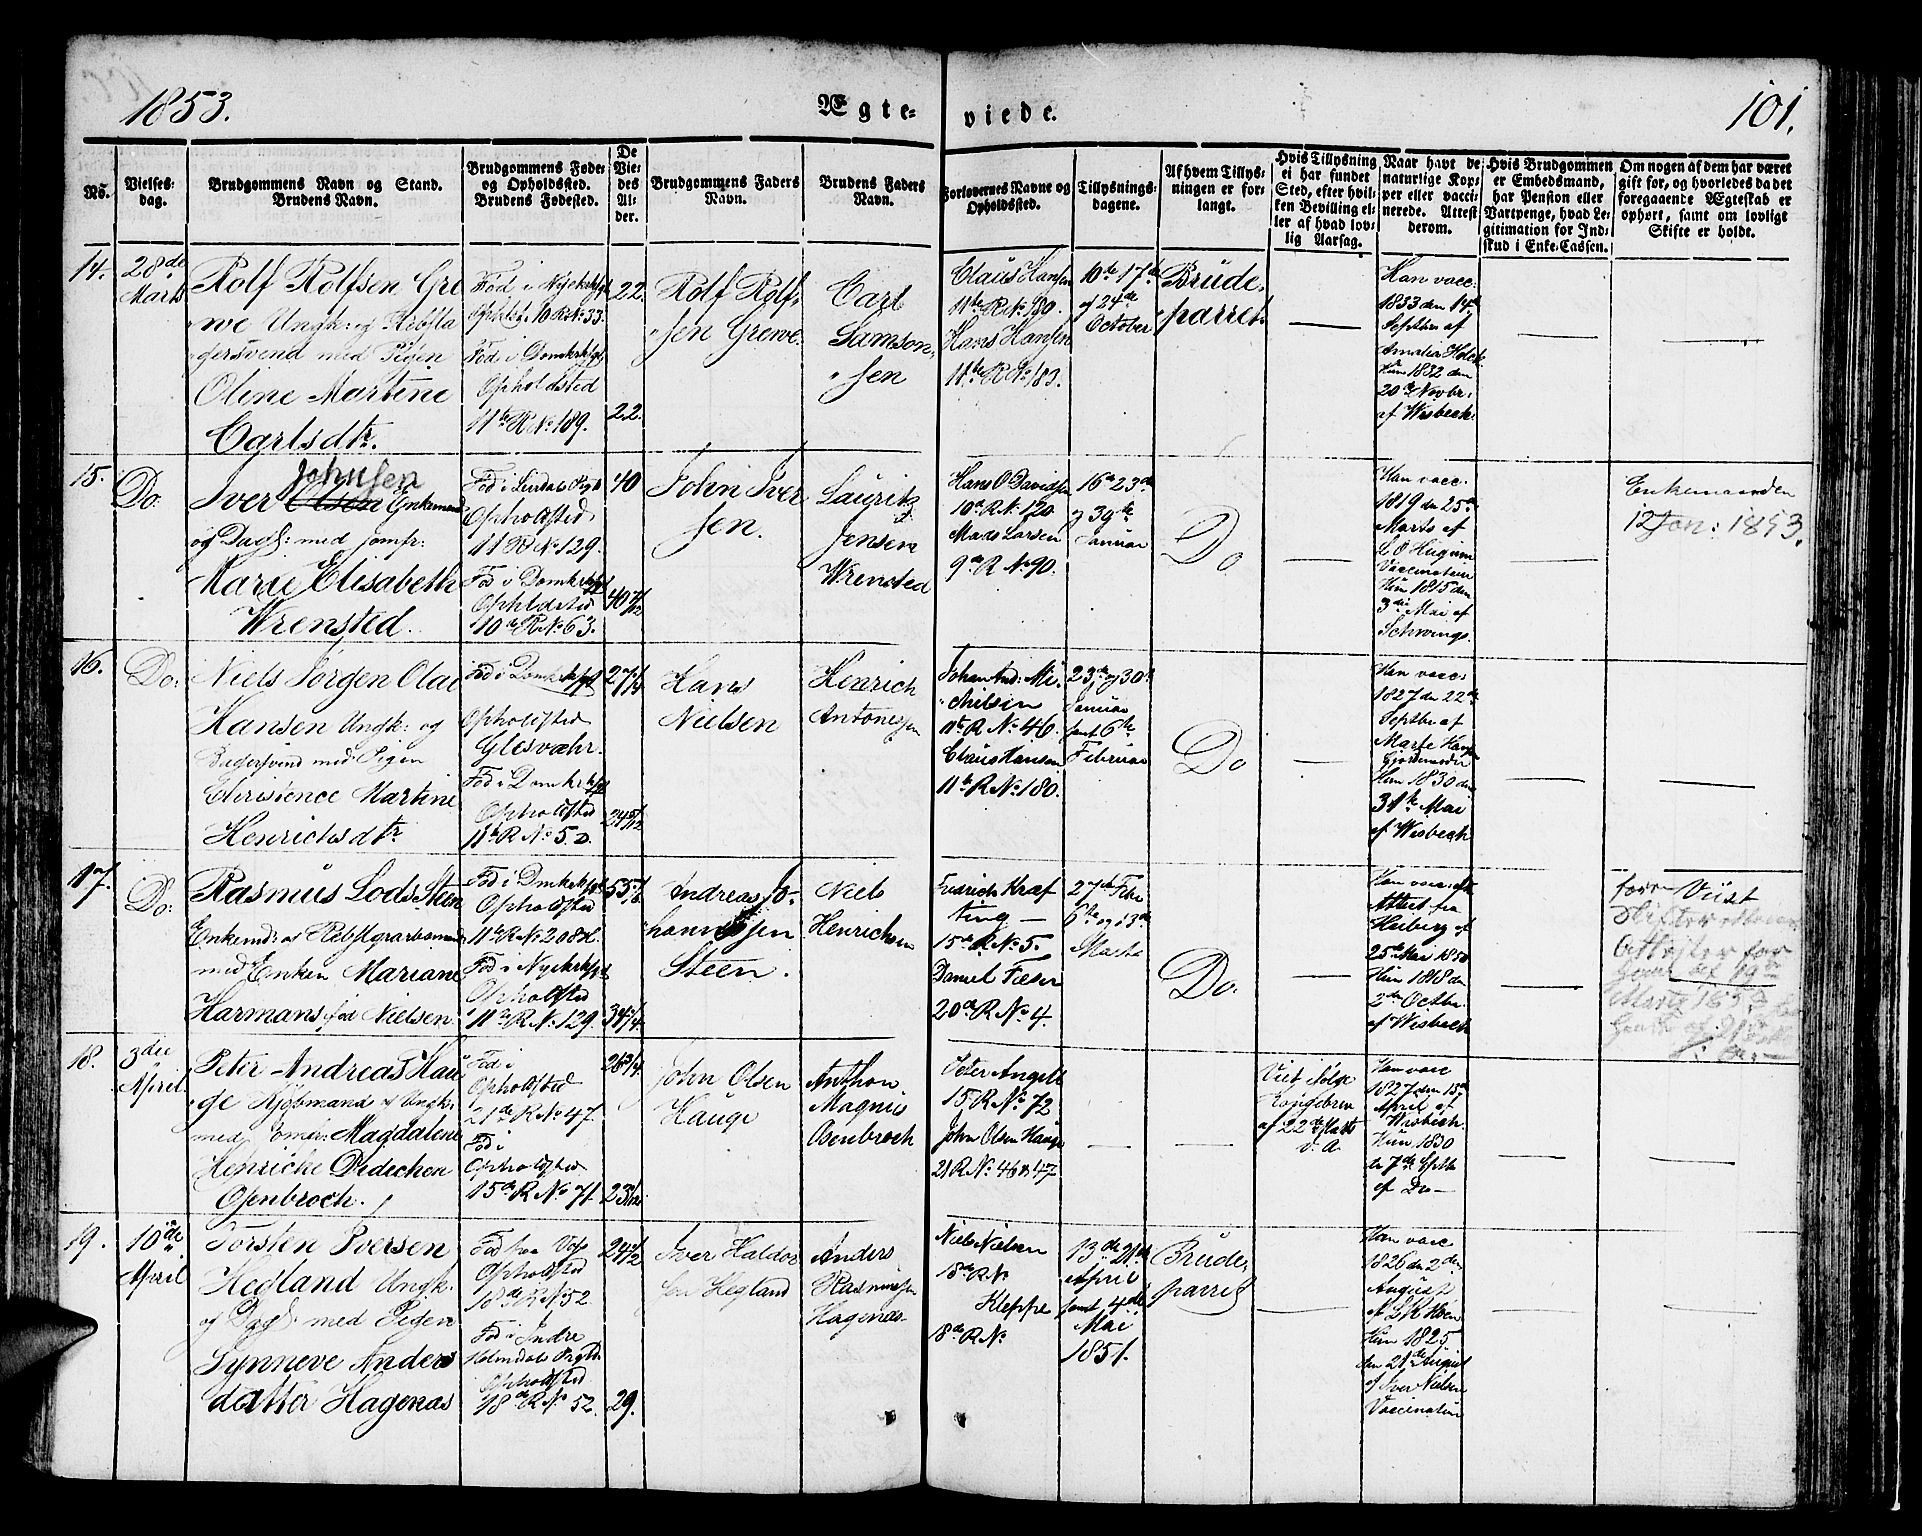 1853.
Ægte-
viede.
101.
No.
Vielses-
dag.
Brudgommens Navn og Stand.
Brudens Navn.
Brudgommens Føde-
og Opholdssted.
Brudens Fødested.
De
Vie-
des
Al-
der.
Brudgommens Faders
Navn.
Brudens Faders
Navn.
Forlovernes Navne og
Opholdssted.
Tillysnings-
dagene.
Af hvem Tillys-
ningen er for-
langt.
Hvis Tillysning
ei har fundet
Sted, efter hvil-
ken Bevilling el-
ler af hvad lov-
lig Aarsag.
Naar havt de
naturlige Kop-
per eller vacci-
nerede. Attest
derom.
Hvis Brudgommen
er Embedsmand,
har Pension eller
Vartpenge, hvad Le-
gitimation for Ind-
skud i Enke-Cassen.
Om nogen af dem har været
gift før, og hvorledes da det
foregaaende Ægteskab er
ophørt, samt om lovligt
Skifte er holdt.
14.
28de
Marts
Rolf Rolfsen Gre
we Ungk: og Rebsla
gersvend med Pigen
Oline Martine
Carlsdtr.
Fød i Nykirkspl
Ophlst. 10 R No 33.
Fød i Domkrkspl
Opholdsted
11te R No 189.
22.
22.
Rolf Rolf,
sen Grewe.
Carl
Samson,
sen
Claus Hansen
11te R No 180.
Hans Hansen
11te R No 183.
10de 17de
og 24de
October
Brude,
parret.
Han vacc:
1833 den 14de
Septbr af
Amalia Holck
Hun 1832 den
20de Novbr:
af Wisbech.
15.
Do:
Johnsen
Iver Olsen Enkemand
og Dags: med Jomfr:
Marie Elisabeth
Wrensted.
Opholdsted
11 R No 129.
Fød i Domkrkspl
Opholdsted
10de R No 63.
40
40 7/12
John Iver
sen.
Lauritz
Jensen
Wrensted
Hans O Davidsen
10de R No 120
Mads Larsen
9de R No 90.
16de 23de
og 30te
Januar
Do
Han vacc.
1819 den 25de
Marts af
Vaccinateur
Hun 1815 den
3die Mai af
Enkemanden
12 Jan: 1853.
16.
Do:
Niels Jørgen Olai
Hansen Ungk: og
med Pigen
Christence Martine
Henrichsdtr
Fød i Domkrkspl
Opholdsted
Glesvær.
Fød i Domkrkspl
Opholdsted
11te R No 5.D.
27 1/4
Hans
Nielsen
Henrich
Antonisen
Johan And: Mi-
chelsen
11te R No 46.
Claus Hansen
11te R No 180.
23de og 30te
Januar
samt 6te
Februar
Do
Han vacc:
1827 den 22de
Septbr af
Hun 1830 den
31te Mai
af Wisbech
17.
Do:
Rasmus Lods Steen
med Enken Mariane
Harmans fød Nielsen.
Fød i Domkrkspl
Opholdsted
11te R No 208 H.
Fød i Nykrkspl
Opholdsted
11te R No 129.
Andreas Jo-
hannessen
Steen.
Niels
Henrichsen
15de R No 5.
20de R No 4.
27de Febr
6te og 13de
Marts
Do.
Attest fra
Heiberg af
25de Mai 1850
Hun 1818 den
2den Octbr.
af Wisbech
18.
3die
April.
Peter Andreas Hau
ge Kjøbmand og Ungk:
med Jomfr: Magdalene
Henricke Didechen
Osenbroch.
Fød i
Opholdsted
21de R No 47.
Fød i
Opholdsted
15de R No 71.
John Olsen
Hauge
Anthon
Magnus
Osenbroch
Peter Angell
15 R No 72
John Olsen Hauge
21 R No 46 & 47
Viet ifølge
Kongebrev
af 22de Marts
d. A.
Han vacc
1827 den 13de
April af
Wisbech.
Hun 1830
de 7de Septb
af Do
19.
10de
April
Torsten Iversen
Hegland Ungk.
og Dags. med Pigen
Synneve Anders
datter Hagenæs
Opholdsted
18de R No 52.
Fød i Indre
Holmedals Prgld.
Opholdsted
18de R No 52.
29.
Iver Haldor
sen Hegland
Anders
Rasmussen
Hagenæs
Niels Nielsen
18de R No
Kleppe
18de R No
13de 21de
April
samt 4de
Mai
1851.
Brude,
parret
Han vacc
1826 den 2den
August
Hun 1825
den 21de August
af Iver Nielsen
Vaccinateur